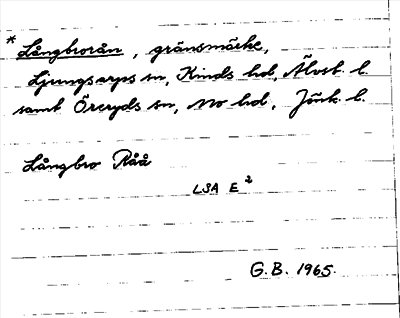 * Långbrorån, gränsmärke,
Ljungsarps sn, Kinds hd, Älvsb. l.
samt Öreryds sn, Mo hd, Jönk. l.
Långbro Råå
LSA E²
G. B. 1965.